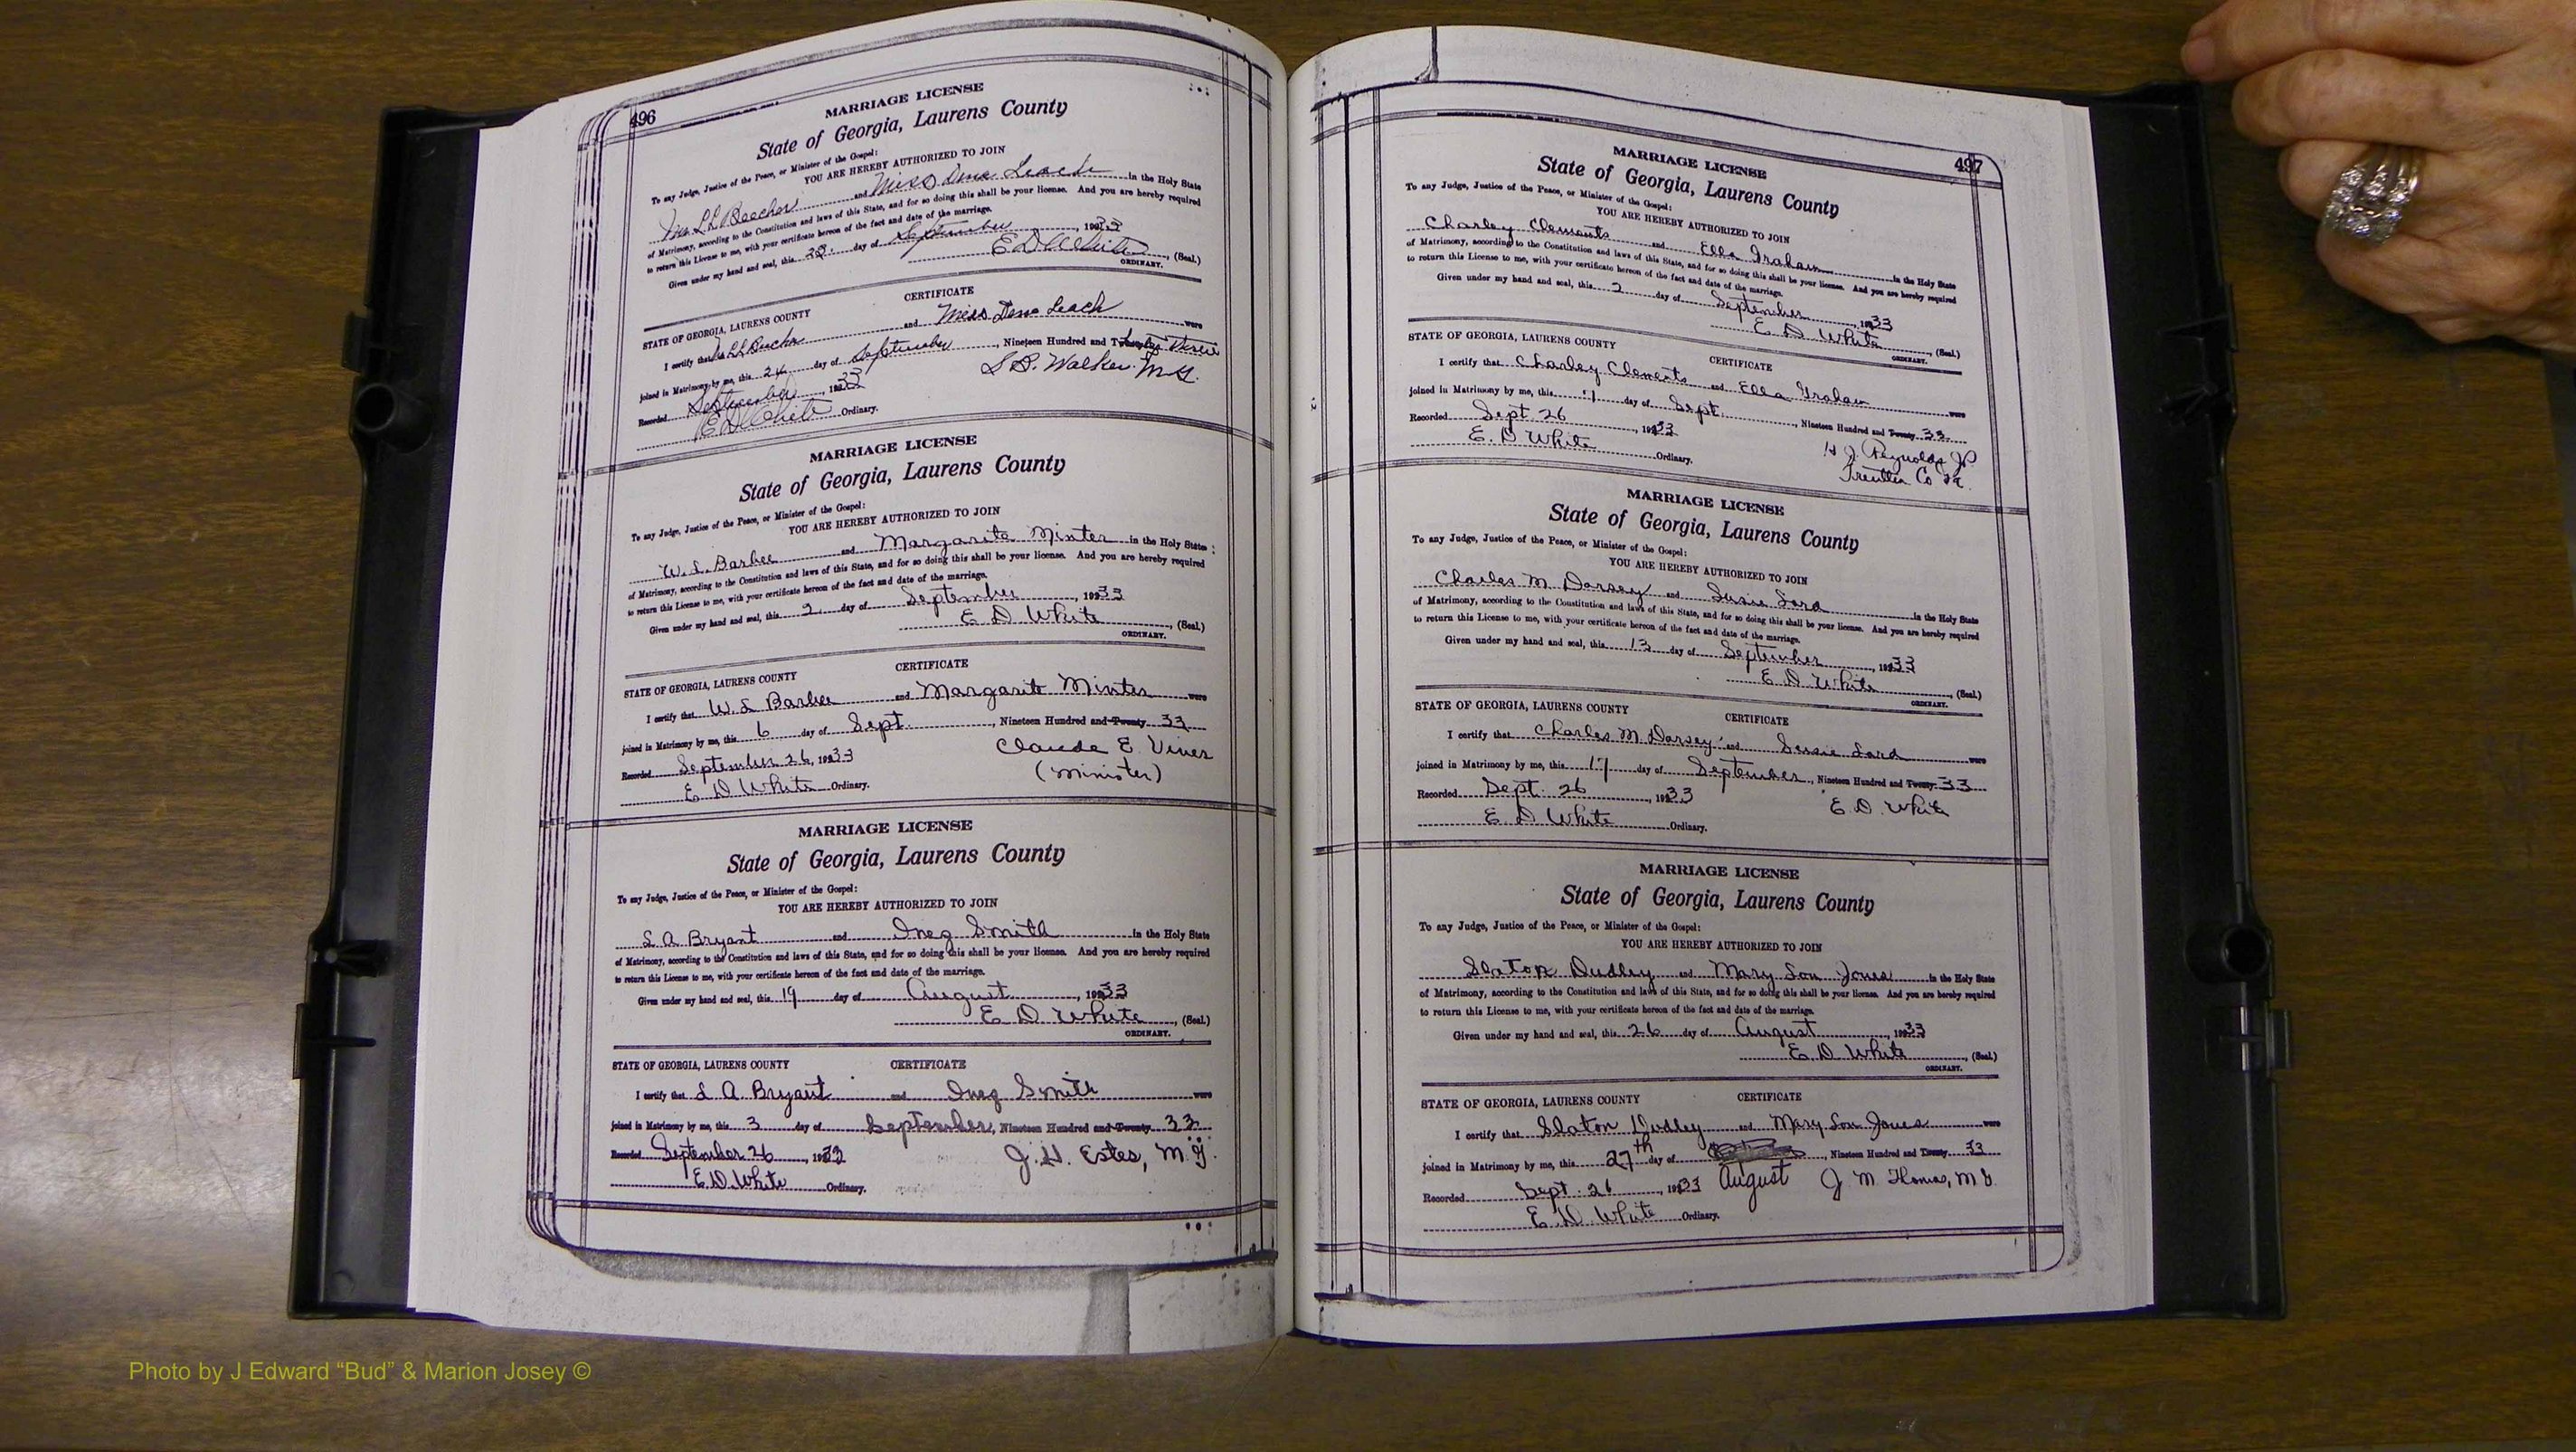 496
MARRIAGE LICENSE
State of Georgia, Laurens County
To any Judge, Justice of the Peace, or Minister of the Gospel:
YOU ARE HEREBY AUTHORIZED TO JOIN
Mr. L L Beecher and Miss Dena Leach in the Holy State
of Matrimony, according to the Constitution and laws of this State, and for so doing this shall be your license. And you are hereby required
to return this License to me, with your certificate hereon of the fact and date of the marriage.
Given under my hand and seal, this day of September, 1933
E D White, (Seal.)
ORDINARY.
CERTIFICATE
STATE OF GEORGIA, LAURENS COUNTY
I certify that L L and Miss Dena Leach were
joined in Matrimony by me, this 24 day of September, Nineteen Hundred and
Recorded September, 1933 Walker M.G.
E D White Ordinary.
MARRIAGE LICENSE
State of Georgia, Laurens County
To any Judge, Justice of the Peace, or Minister of the Gospel:
YOU ARE HEREBY AUTHORIZED TO JOIN
W. L. Barbee and Margarite Minter in the Holy State
of Matrimony, according to the Constitution and laws of this State, and for so doing this shall be your license. And you are hereby required
to return this License to me, with your certificate hereon of the fact and date of the marriage.
Given under my hand and seal, this 2 day of September, 1933
E D White, (Seal.)
ORDINARY.
CERTIFICATE
STATE OF GEORGIA, LAURENS COUNTY
I certify that W. L Barbee and Margarit Minter were
joined in Matrimony by me, this 6 day of Sept., Nineteen Hundred and Twenty 33
Recorded September 26, 1933 Claude E. Vines
E D White Ordinary. (Minister)
MARRIAGE LICENSE
State of Georgia, Laurens County
To any Judge, Justice of the Peace, or Minister of the Gospel:
YOU ARE HEREBY AUTHORIZED TO JOIN
L A Bryant and Inez Smith in the Holy State
of Matrimony, according to the Constitution and laws of this State, and for so doing this shall be your license. And you are hereby required
to return this License to me, with your certificate hereon of the fact and date of the marriage.
Given under my hand and seal, this 19 day of August, 1933
E D White, (Seal.)
ORDINARY.
STATE OF GEORGIA, LAURENS COUNTY CERTIFICATE
I certify that L A Bryant and Inez Smith were
joined in Matrimony by me, this 3 day of September, Nineteen Hundred and Twenty 33
Recorded September 26, 1933 J. H. Estes, M.G.
E D White Ordinary.
497
MARRIAGE LICENSE
State of Georgia, Laurens County
To any Judge, Justice of the Peace, or Minister of the Gospel:
YOU ARE HEREBY AUTHORIZED TO JOIN
Charley Clements and Ella Graham in the Holy State
of Matrimony, according to the Constitution and laws of this State, and for so doing this shall be your license. And you are hereby required
to return this License to me, with your certificate hereon of the fact and date of the marriage.
Given under my hand and seal, this 2 day of September, 1933
E. D White, (Seal.)
ORDINARY.
STATE OF GEORGIA, LAURENS COUNTY
CERTIFICATE
I certify that Charley Clements and Ella Graham were
joined in Matrimony by me, this day of Sept., Nineteen Hundred and Twenty 33
Recorded Sept 26, 1933 H J. Reynolds JP
E. D White Ordinary. Treutlen Co Ga.
MARRIAGE LICENSE
State of Georgia, Laurens County
To any Judge, Justice of the Peace, or Minister of the Gospel:
YOU ARE HEREBY AUTHORIZED TO JOIN
Charles M. Darsey and Susie Lord in the Holy State
of Matrimony, according to the Constitution and laws of this State, and for so doing this shall be your license. And you are hereby required
to return this License to me, with your certificate hereon of the fact and date of the marriage.
Given under my hand and seal, this 13 day of September, 1933
E D White, (Seal.)
ORDINARY.
STATE OF GEORGIA, LAURENS COUNTY
CERTIFICATE
I certify that Charles M. Darsey and Lord were
joined in Matrimony by me, this 17 day of September, Nineteen Hundred and Twenty 33
Recorded Sept. 26, 1933 E. D. White
E D White Ordinary.
MARRIAGE LICENSE
State of Georgia, Laurens County
To any Judge, Justice of the Peace, or Minister of the Gospel:
YOU ARE HEREBY AUTHORIZED TO JOIN
Slaton Dudley and Mary Lou Jones in the Holy State
of Matrimony, according to the Constitution and laws of this State, and for so doing this shall be your license. And you are hereby required
to return this License to me, with your certificate hereon of the fact and date of the marriage.
Given under my hand and seal, this 26 day of August, 1933
E. D. White, (Seal.)
ORDINARY.
STATE OF GEORGIA, LAURENS COUNTY CERTIFICATE
I certify that Slaton Dudley and Mary Lou Jones were
joined in Matrimony by me, this 27th day of, Nineteen Hundred and Twenty 33
Recorded Sept. 26, 1933 August J. M. Thomas, M G.
E. D. White Ordinary.
Photo by J Edward “Bud” & Marion Josey ©